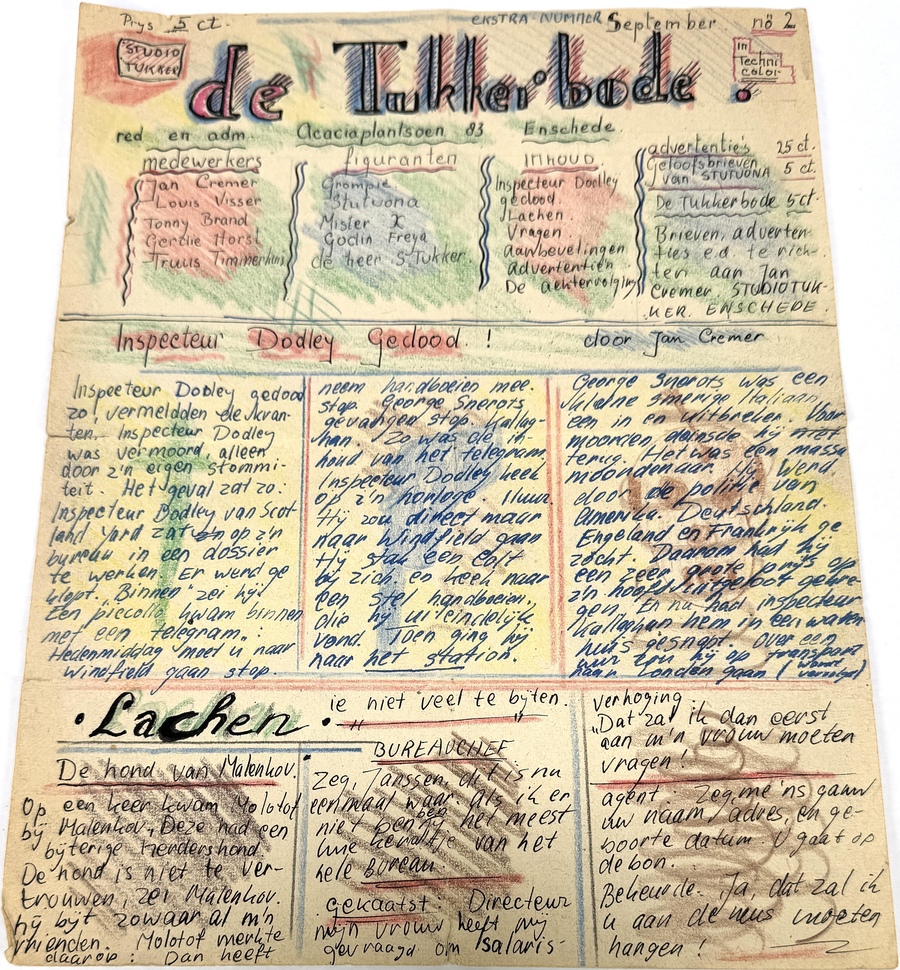 Prys 5 ct.
EKSTRA-NUMMER September nō 2
STUDIO
TUKKER
de Tukkerbode.
in
Techni
color
red. en adm. Acaciaplantsoen 83 Enschede.
medewerkers
Jan Cremer
Louis Visser
Tonny Brand
Gerdie Horst
Truus Timmerhuis
figuranten
Grompie
Stutuona
Mister X
Godin Freya
de heer S. Tukker.
INHOUD.
Inspecteur Dodley
gedood.
Lachen.
Vragen.
aanbevelingen
advertentiën
De achtervolging
advertentie's 25 ct.
Geloofsbrieven 5 ct.
van STUTUONA
De Tukkerbode 5 ct.
Brieven, adverten-
ties e.d. te rich-
ten aan Jan
Cremer STUDIOTUK-
KER. ENSCHEDE.
Inspecteur Dodley Gedood! door Jan Cremer
Inspecteur Dodley gedood
zo vermeldden de kran-
ten. Inspecteur Dodley
was vermoord, alleen
door z'n eigen stommi-
teit. Het geval zat zo:
Inspecteur Dodley van Scot-
land Yard zat op z'n
bureau in een dossier
te werken. Er werd ge
klopt. "Binnen" zei hij.
Een piccolo kwam binnen
met een telegram.:
Hedenmiddag moet u naar
Windfield gaan stop.
neem handboeien mee.
stop. George Snerots
gevangen stop. Kallag-
han. Zo was de in-
houd van het telegram.
Inspecteur Dodley keek
op z'n horloge. 11 uur.
Hij zou direct maar
naar Windfield gaan
Hij stak een colt
bij zich, en keek naar
een stel handboeien,
die hij uiteindelijk
vond. Toen ging hij
naar het station.
George Snerots was een
kleine smerige Italiaan,
een in en uitbreker. Voor
moorden, deinsde hij niet
terug. Het was een massa
moordenaar. Hij werd
door de politie van
Amerika. Deutschland.
Engeland en Frankrijk ge
zocht. Daarom had hij
een zeer grote prijs op
z'n hoofd uitgeloof gekre-
gen. En nu had inspecteur
Kallaghan hem in een waren
huis gesnapt. Over een
uur zou hij op transport
naar Londen gaan (wordt vervolgd)
• Lachen •
De hond van Malenkov.
Op een keer kwam Molotof
bij Malenkov. Deze had een
bijterige Herdershond.
De hond is niet te ver-
trouwen, zei Malenkov.
hij bijt zowaar al m'n
vrienden. Molotof merkte
daarop: Dan heeft
ie niet veel te bijten.
BUREAUCHEF
Zeg, Janssen, dit is nu
eenmaal waar. als ik er
niet ben ben jij het meest
luie kereltje van het
hele bureau.
gekaatst: Directeur
mijn vrouw heeft mij
gevraagd om salaris-
verhoging
"Dat zal ik dan eerst
aan m'n vrouw moeten
vragen!
agent: Zeg me 'ns gauw
uw naam, adres, en ge-
boorte datum. U gaat op
de bon.
Bekeurde: Ja, dat zal ik
u aan de neus moeten
hangen!